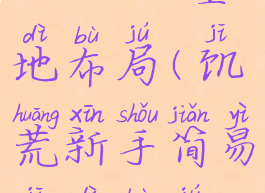 dì bù jú jī
地布局(饥
huāng xīn shǒu jiǎn yì
荒新手简易